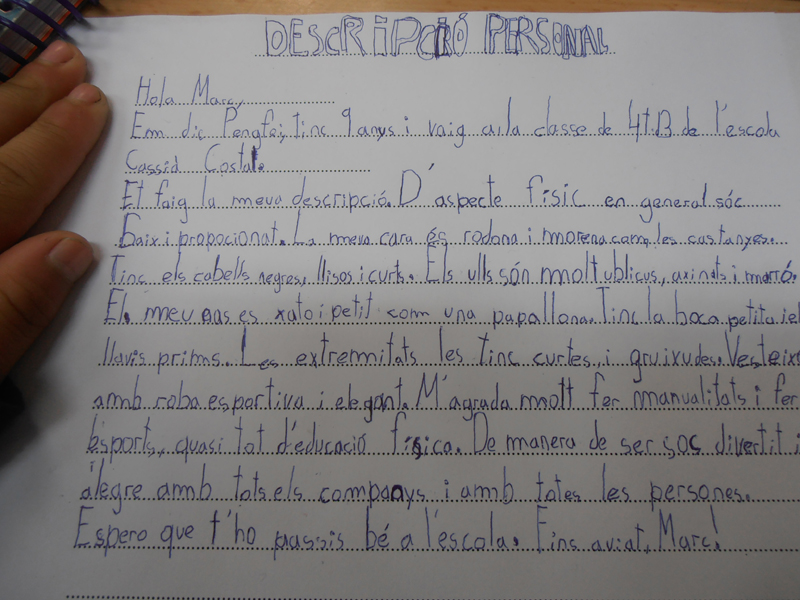 DESCRIPCIÓ PERSONAL
Hola Marc,
Em dic Pengfei, tinc 9 anys i vaig a la classe de 4t.B de l'escola
Cassià Costal.
Et faig la meva descripció. D'aspecte físic en general sóc
baix i propocionat. La meva cara és rodona i morena com les castanyes.
Tinc els cabells negres, llisos i curts. Els ulls són molt ublicus, axinats i marró.
El meu nas es xato i petit com una papallona. Tinc la boca petita i el
llavis prims. Les extremitats les tinc curtes, i gruixudes. Vesteixo
amb roba esportiva i elegant. M'agrada molt fer manualitats i fer
esports, quasi tot d'educació física. De manera de ser sóc divertit i
alegre amb tots els companys i amb totes les persones.
Espero que t'ho passis bé a l'escola. Fins aviat, Marc!